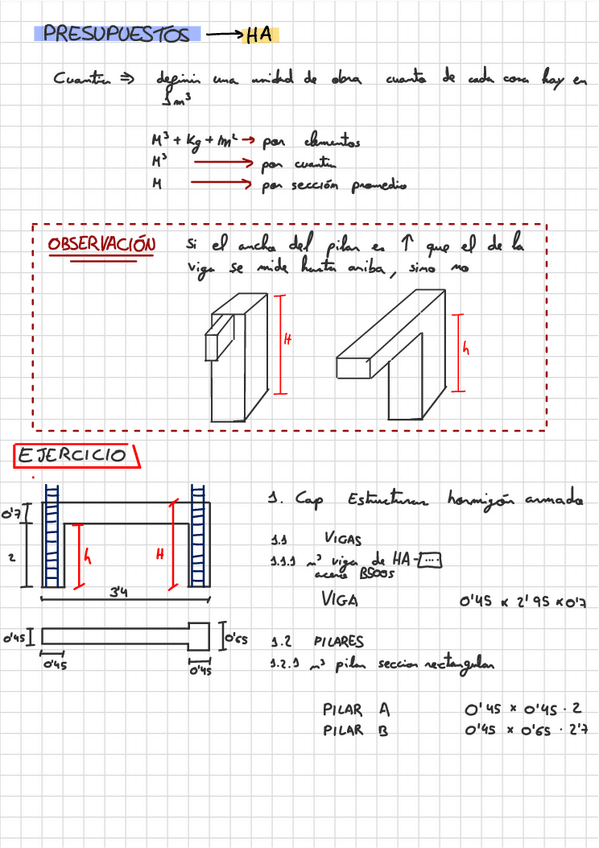 PRESUPUESTOS → HA
Cuantía ⇒ definir una unidad de obra cuanto de cada cosa hay en
1m³
M³ + Kg + m² → por elementos
M³ → por cuantía
M → por sección promedio
OBSERVACIÓN si el ancho del pilar es ↑ que el de la
viga se mide hasta arriba, sino no
H
h
EJERCICIO
0'7
2
h
H
3'4
0'45
0'65
0'45
0'45
1. Cap Estructuras hormigón armado
1.1 VIGAS
1.1.1 m³ viga de HA-[...]
acero B500S
VIGA 0'45 x 2'95 x 0'7
1.2 PILARES
1.2.1 m³ pilar seccion rectangular
PILAR A 0'45 x 0'45 · 2
PILAR B 0'45 x 0'65 · 2'7